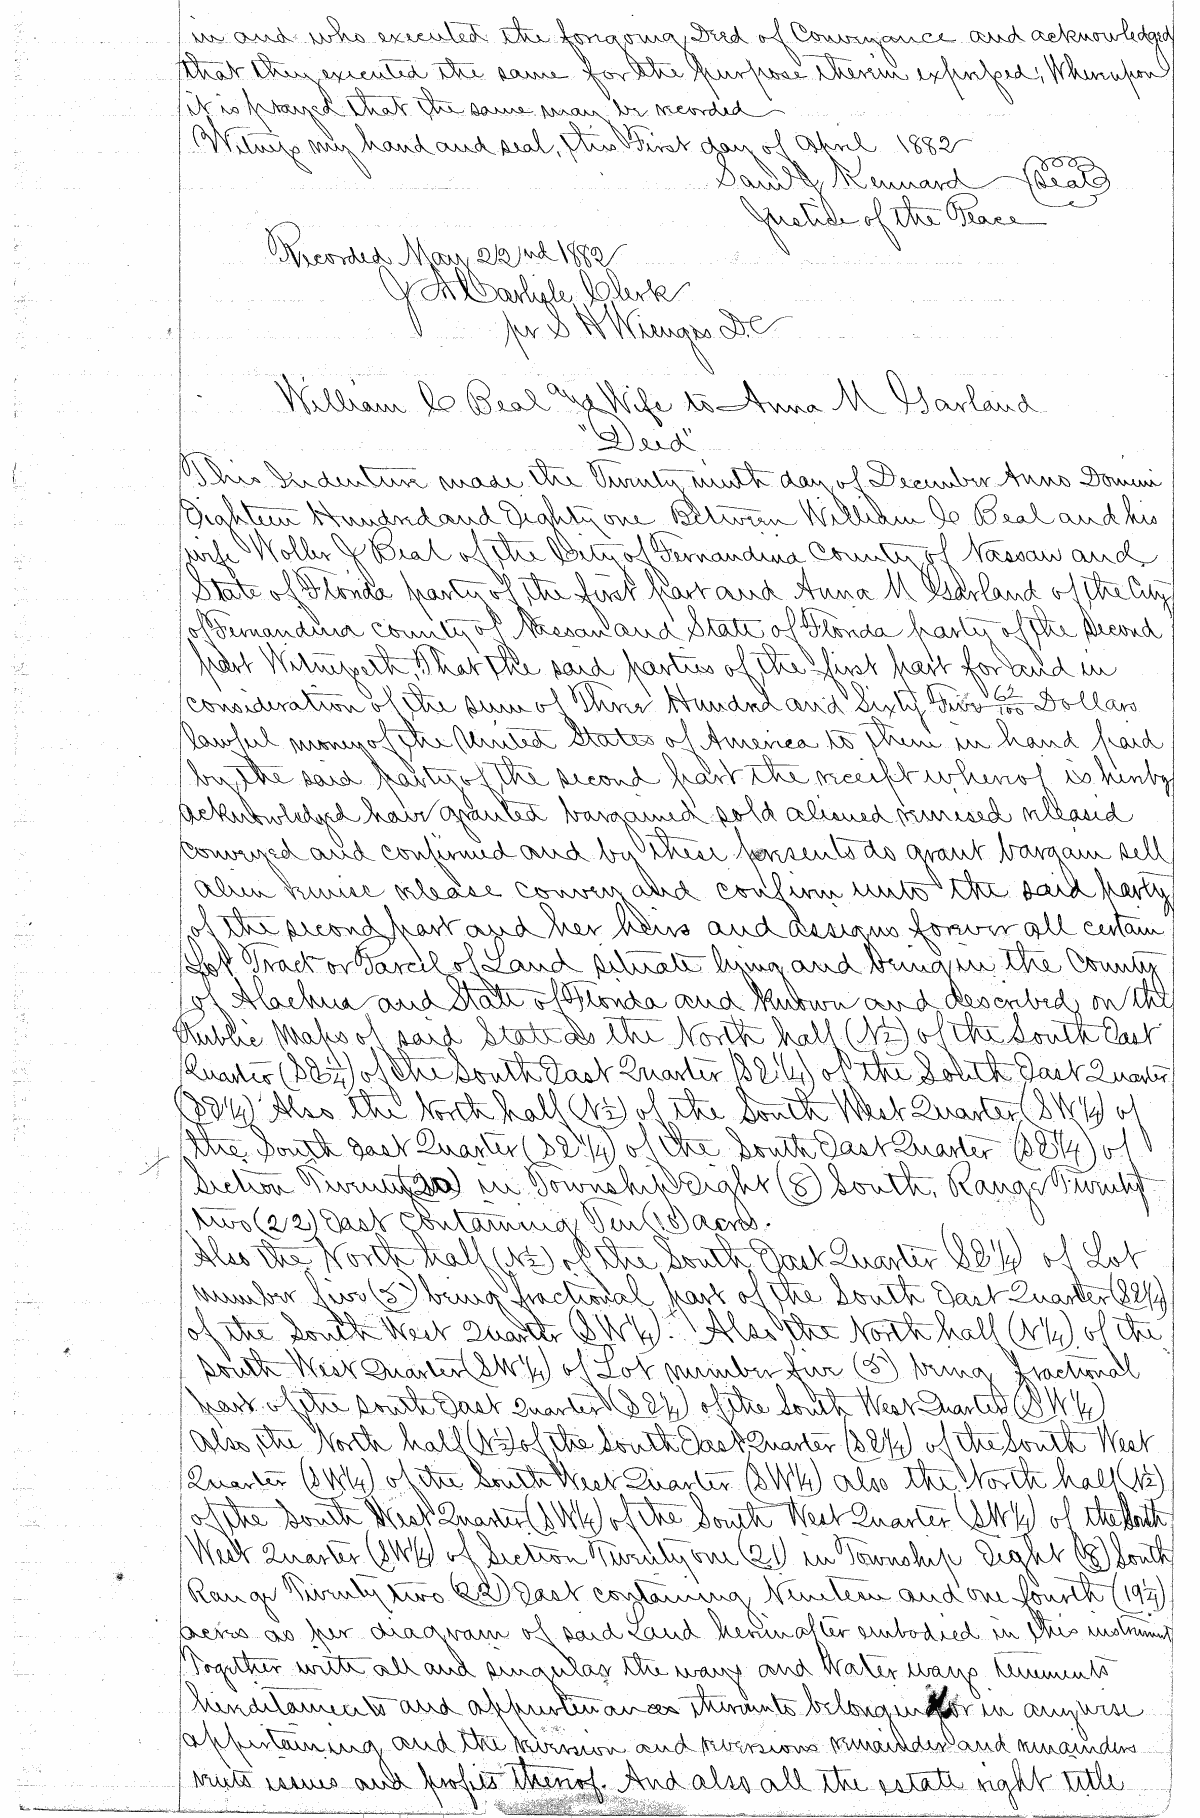 in and who executed the foregoing Deed of Conveyance and acknowledged
that they executed the same for the purpose therein expressed; Whereupon
it is prayed that the same may be recorded
Witness my hand and seal, this First day of April 1882
Saml J Kennard (Seal)
Justice of the Peace
Recorded May 22nd 1882
J A Carlisle Clerk
pr S H Wienges D.C
William C Beal and Wife to Anna M Garland
"Deed"
This Indenture made the Twenty ninth day of December Anno Domini
Eighteen Hundred and Eighty one Between William C Beal and his
wife J Beal of the City of Fernandina County of Nassau and
State of Florida party of the first part and Anna M Garland of the City
of Fernandina county of Nassau and State of Florida party of the second
part Witnesseth, That the said parties of the first part for and in
consideration of the sum of Three Hundred and Sixty Five 62/100 Dollars
lawful money of the United States of America to them in hand paid
by the said party of the second part the receipt whereof is hereby
acknowledged have granted bargained sold aliened remised released
conveyed and confirmed and by these presents do grant bargain sell
alien remise release convey and confirm unto the said party
of the second part and her heirs and assigns forever all certain
Lot Tract or Parcel of Land situate lying and being in the County
of Alachua and State of Florida and known and described on the
Public Maps of said State as the North half (N½) of the South East
Quarter (SE¼) of the South East Quarter (SE¼) of the South East Quarter
(SE¼) Also the North half (N½) of the South West Quarter (SW¼) of
the South East Quarter (SE¼) of the South East Quarter (SE¼) of
Section Twenty (20) in Township Eight (8) South, Range Twenty
two (22) East containing Ten (10) acres.
Also the North half (N½) of the South East Quarter (SE¼) of Lot
number five (5) being fractional part of the South East Quarter (SE¼)
of the South West Quarter (SW¼). Also the North half (N½) of the
South West Quarter (SW¼) of Lot number five (5) being fractional
part of the South East Quarter (SE¼) of the South West Quarter (SW¼)
Also, the North half (N½) of the South East Quarter (SE¼) of the South West
Quarter (SW¼) of the South West Quarter (SW¼) also the North half (N½)
of the South West Quarter (SW¼) of the South West Quarter (SW¼) of the South
West Quarter (SW¼) of Section Twenty one (21) in Township Eight (8) South
Range Twenty two (22) East containing Nineteen and one fourth (19¼)
acres as per diagram of said Land hereinafter embodied in this instrument
Together with all and singular the ways and Water ways tenements
hereditaments and appurtenances thereunto belonging or in anywise
appertaining and the reversion and reversions remainder and remainders
rents issues and profits thereof. And also all the estate right title